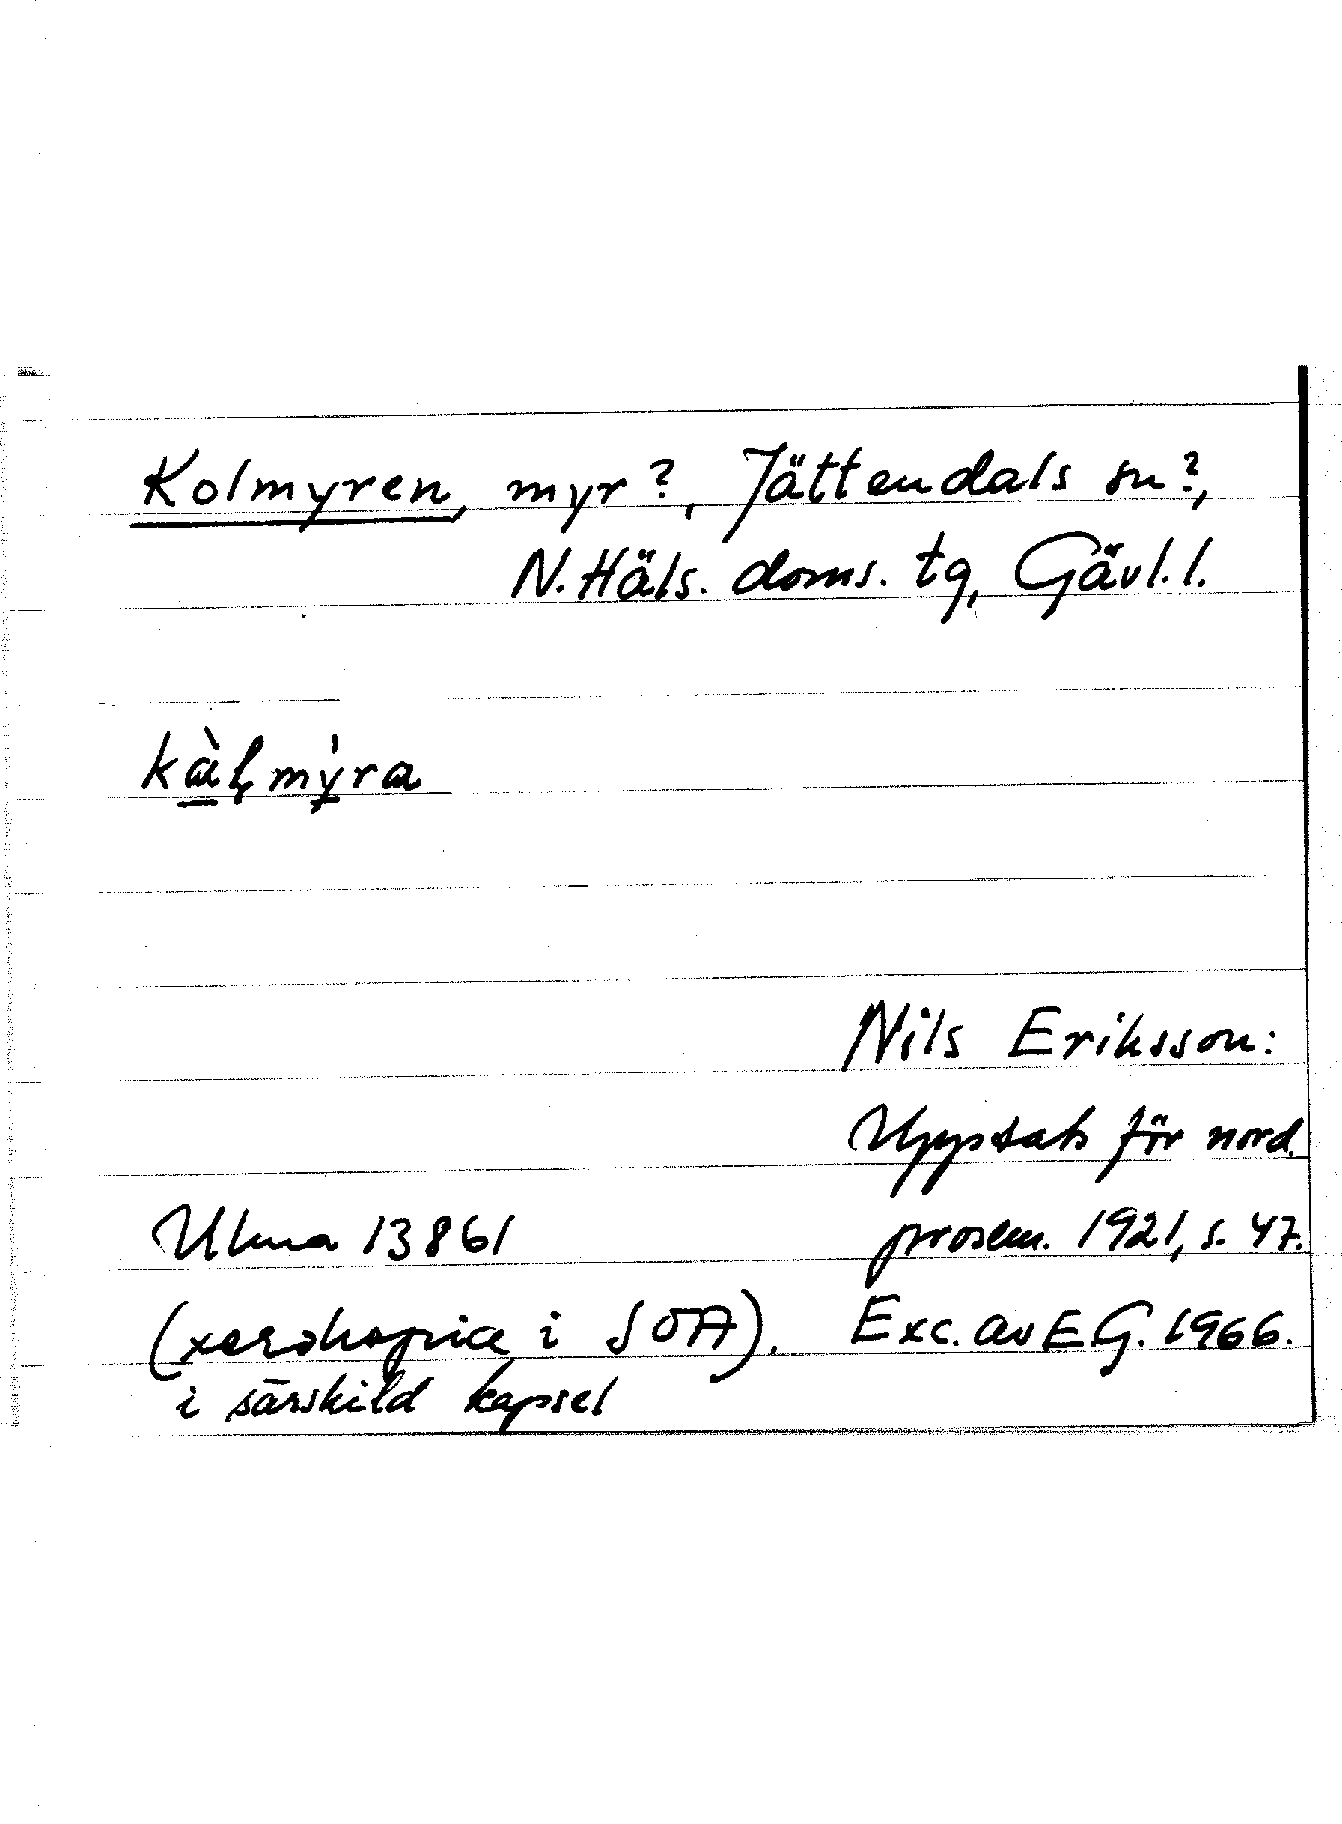 Kolmyren, myr?, Jättendals sn?,
N. Häls. doms. tg, Gävl. l.
kàl̥mỳra
Nils Eriksson:
Uppsats för nord.
Ulma 13861 prosem. 1921, s. 47.
(xerokopia i SOA). Exc. av E G. 1966.
i särskild kapsel